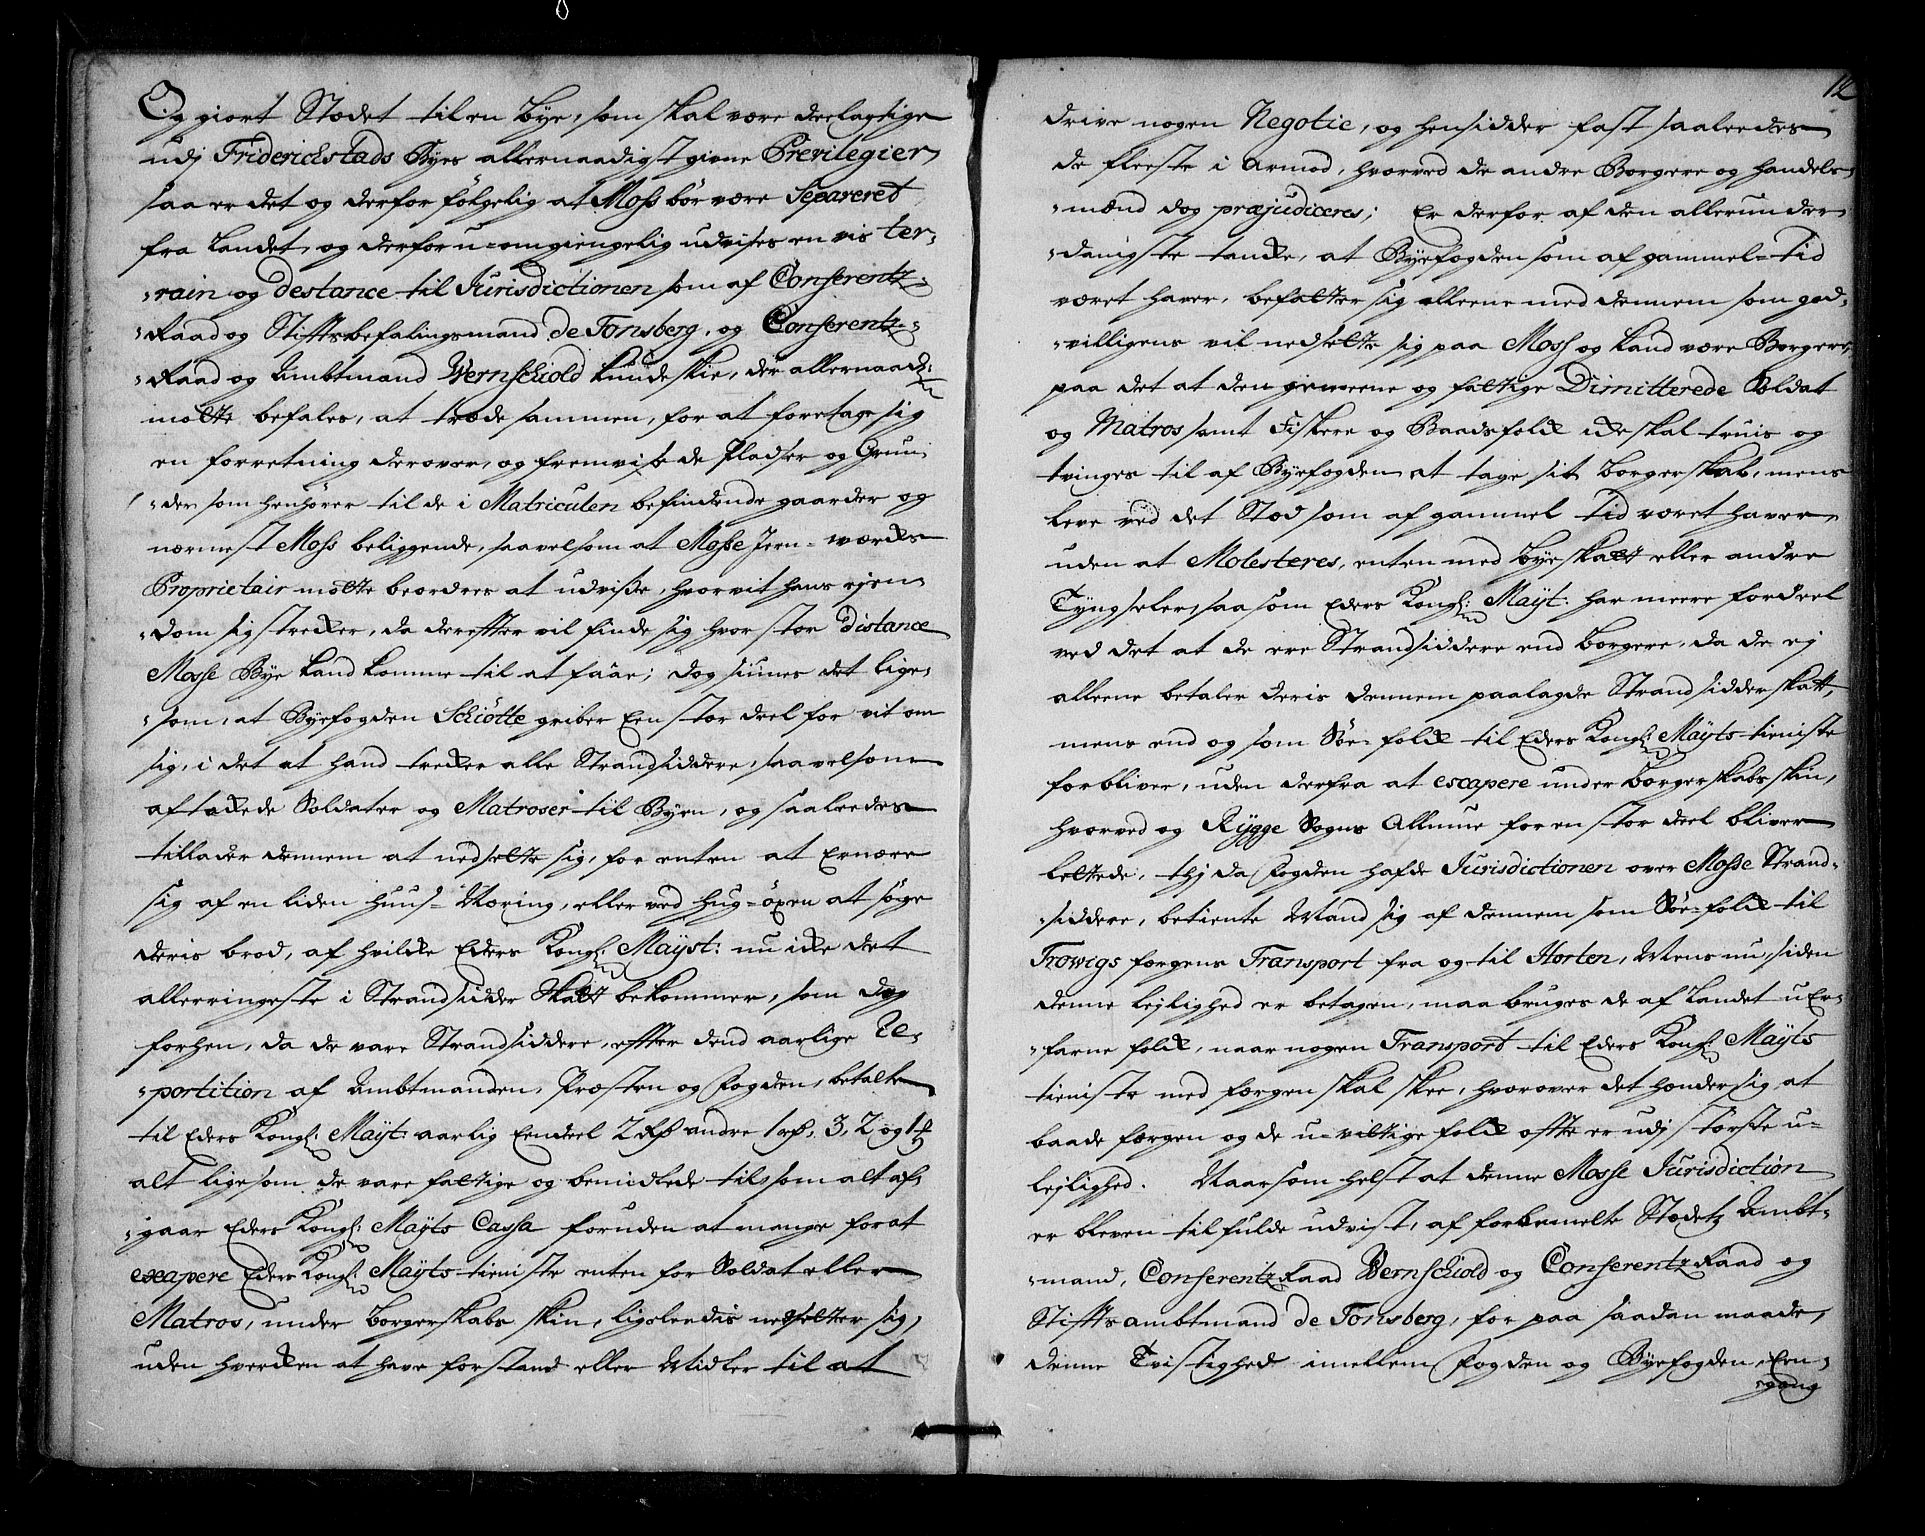 Og giort Stædet til en Bye, som skal være deelagtige
udj Friderichstads Byes allernaadigst givne Previlegier
saa er det og derfor følgelig at Moss bør være Separeret
fra Landet, og derfor u-omgiengelig udvises en vis ter-
-rain og destance til Jurisdictionen som af Conferentz-
-Raad og Stifftsbefalingsmand de Tonsberg, og Conferentz-
-Raad og Ambtmand Wernschiold kunde skie, der allernaad:
motte befales, at træde sammen, for at foretage sig
en forretning derover, og fremvise de Pladser og Grun-
-der som henhører til de i Matriculen befindende gaarder og
nærmest Moss beliggende, saavelsom at Mosse Jern-værks
Proprietair motte beordres at udvise, hvorvit hans ejen-
-dom sig strecker, da derefter vil finde sig hvor stor Distance
Mosse Bye kand komme til at faae; dog siunes det lige-
-som, at Byefogden Schiøtte griber Een stor deel for vit om
sig, i det at hand trecker alle Strandsiddere, saavelsom
aftackede Soldater og Matroser til Byen, og saaleedes
tillader dennem at nedsette sig, for enten at Ernære
sig af en liden Huus-Næring, eller ved hug-øxen at søge
deris brød, af hvilcke Eders Kongl: Mayst: nu icke det
allerringeste i Strandsidder Skatt bekommer, som dog
forhen, da de vare Strandsiddere, effter dend aarlige Re-
-partition af Ambtmanden, Præsten og Fogden, betalte
til Eders Kongl: Mayt: aarlig Eendeel 2 Rd andre 1 rd, 3, 2 og 1
alt ligesom de vare fattige og bemidlede til, som alt af-
-gaar Eders Kongl: Mayts Cassa foruden at mange for at
excapere Eders Kongl: Mayts tieniste enten for Soldat eller
Matros, under Borgerskabs skin, ligeleedis nedsetter sig,
uden hvercken at have forstand eller Midler til at
12
drive nogen Negotie, og hensidder fast saaleedes
de fleeste i Armod, hvorved de andre Borgere og Handels-
-mænd dog præjudiceres; Er derfor af den allerunder-
-danigste tancke, at Byefogden som af gammel-tid
været haver, befatter sig alleene med dennem som god-
-villigens vil nedsette sig paa Moss og kand være Borgere,
paa det at den gemeene og fattige Dimitterede Soldat
og Matros samt Fiskere og Baadsfolck icke skal truis og
tvinges til af Byefogden at tage sit Borgerskab, mens
leve ved det Stæd som af gammel tid været haver,
uden at Molesteres, enten med Byeskatt eller andre
Tyngseler, saa som Eders Kongl: Mayt: har meere fordeel
ved det at de ere Strandsiddere end Borgere, da de ej
alleene betaler deris dennem paalagde Strandsidderskatt,
mens end og som Søe-folck til Eders Kongl: Mayts tieniste
forbliver, uden derfra at excapere under Borgerskabs skin,
hvorved og Rygge Sogns Allmue for en stor deel bliver
lettede, thj da Fogden hafde Jurisdictionen over Mosse Strand-
-siddere, betiente Mand sig af dennem som Søe-folck til
Frowigs færgens Transport fra og til Horten, Mens nu, siden
denne lejlighed er betagen, maa bruges de af Landet u-Er-
-farne folck, naar nogen Transport til Eders Kongl: Mayts
tieniste med færgen skal skee, hvorover det hænder sig at
baade færgen og de u-villige folck offte er udj største u-
lejlighed. Naarsomhelst at denne Mosse Jurisdiction
er bleven til fulde udvist, af forbemelte Stædetz Ambt-
-mand, Conferentz Raad Wernschiold og Conferentz Raad og
Stifftsambtmand de Tonsberg, for paa saadan maade,
denne Tvistighed imellem Fogden og Byefogden, Een-
-gang